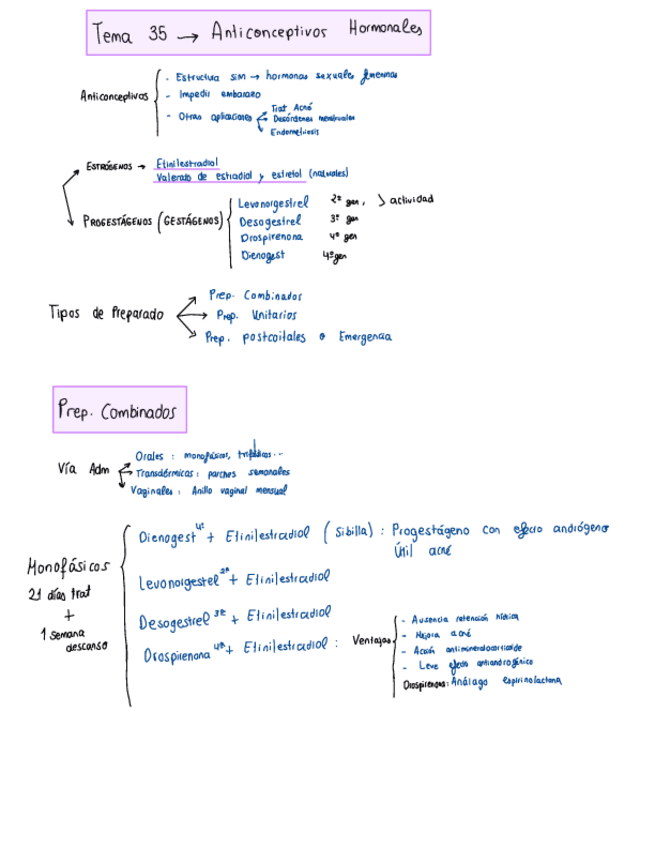 Tema 35 → Anticonceptivos Hormonales
Anticonceptivos
- Estructura sim → hormonas sexuales femeninas
- Impedir embarazo
- Otras aplicaciones
Trat. Acné
Desórdenes menstruales
Endometriosis
ESTRÓGENOS → Etinilestradiol
Valerato de estradiol y estretol (naturales)
PROGESTÁGENOS (GESTÁGENOS)
Levonorgestrel 2ª gen, > actividad
Desogestrel 3ª gen
Drospirenona 4ª gen
Dienogest 4ªgen
Tipos de Preparado
Prep. Combinados
Prep. Unitarios
Prep. postcoitales o Emergencia
Prep. Combinados
Vía Adm
Orales : monofásicos, trifásicos...
Transdérmicas : parches semanales
Vaginales : Anillo vaginal mensual
Monofásicos
21 días trat
+
1 semana
descanso
Dienogest 4ª + Etinilestradiol (Sibilla) : Progestágeno con efecto andrógeno
Útil acné
Levonorgestrel 2ª + Etinilestradiol
Desogestrel 3ª + Etinilestradiol
Drospirenona 4ª + Etinilestradiol : Ventajas
- Ausencia retención hídrica
- Mejora acné
- Acción antimineralocorticoide
- Leve efecto antiandrogénico
Drospirenona: Análago espirinolactona